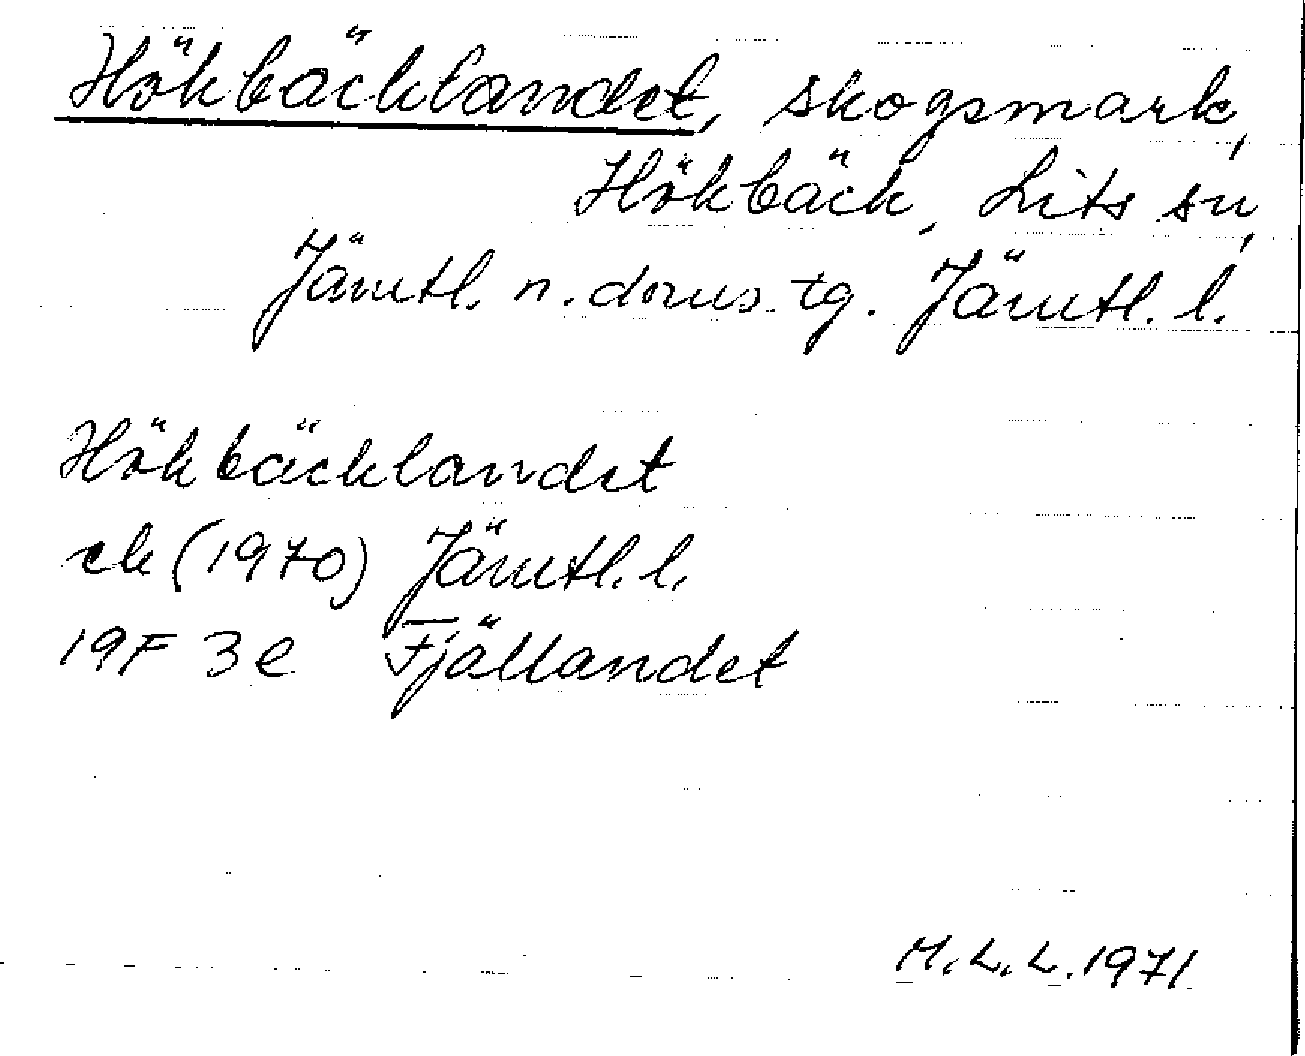 Hökbäcklandet, skogsmark,
Hökbäck, Lits sn,
Jämtl. n. doms. tg. Jämtl. l.
Hökbäcklandet
ek (1970) Jämtl. l.
19F 3e Fjällandet
M.L.L. 1971